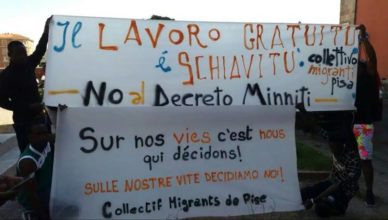 Il LAVORO GRATUITO
é SCHIAVITU'
collettivo
migranti
pisa
- No al Decreto Minniti -
Sur nos vies c'est nous
qui décidons!
SULLE NOSTRE VITE DECIDIAMO NOI!
Collectif Migrants de Pise